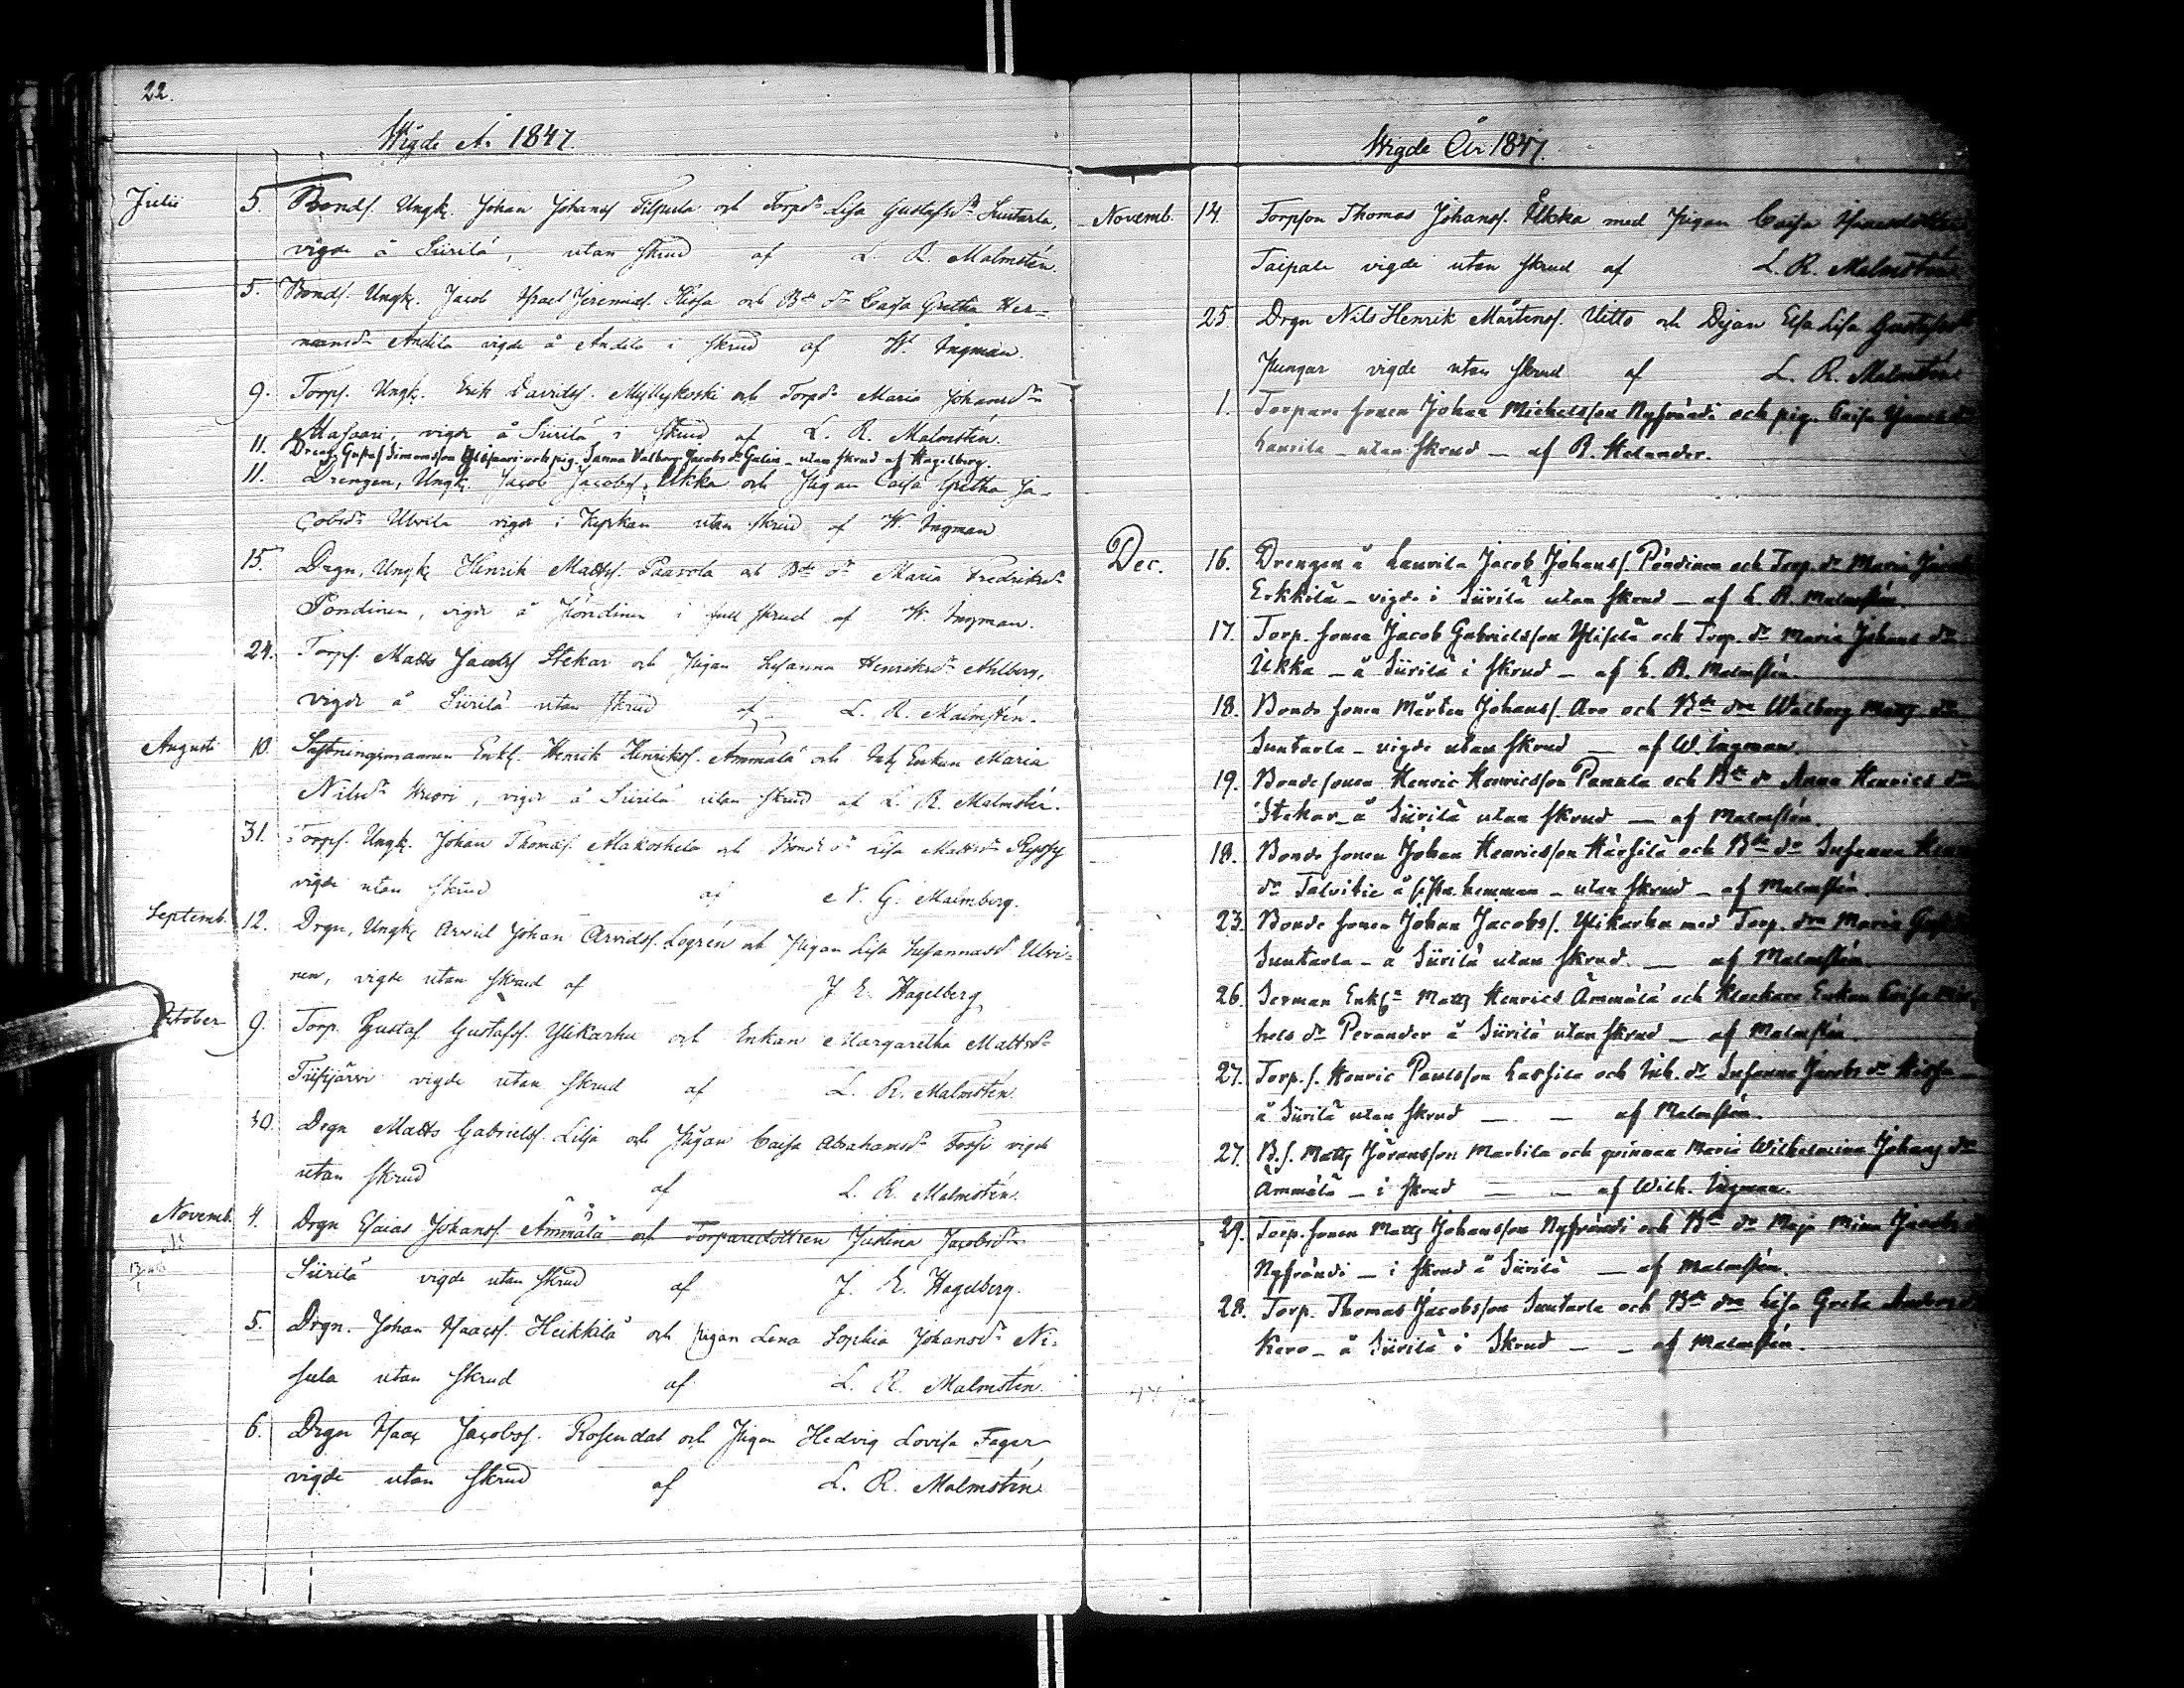 22.
Wigde År 1847.
Julii 5. Bonds. Ungk. Johan Johanss. Filpula och Torpd. Lisa Gustafsdr Suutarla,
vigde å Siirilä, utan skrud af L. R. Malmstén.
5. Bonds. Ungk. Jacob Israel Jeremiæs. Kissa och Bde dr Caisa Gretha Her-
mansdr Andila vigde å Andila i skrud af W. Ingman.
9. Torps. Ungk. Erik Davidss. Myllykoski och Torpdr Maria Johansdr
vigde å Siirilä i skrud af L. R. Malmstén.
11. Dreng Gustaf Simonsson och pig. Sanna Valborg Jacobs dr Galin - utan skrud af Hagelberg.
11. Drengen, Ungk. Jacob Jacobss. Ukka och Pigan Caisa Gretha Ja-
cobsdr Ulvila vigde i Kyrkan utan skrud af W. Ingman
15. Drgn, Ungk. Henrik Mattss. Paavola och Bde dr Maria Fredriksdr
Pöndinen, vigde å Pöndinen i full skrud af W. Ingman.
24. Torps. Matts Jacobss Stekar och Pigan Susanna Henriksdr Ahlberg,
vigde å Siirilä utan skrud af L. R. Malmstén.
Augusti 10. Enkl. Henrik Henrikss. Ämmälä och Enkan Maria
Nilsdr Wuori, vigde å Siirilä utan skrud af L. R. Malmstén.
31. Torps. Ungk. Johan Thomæs. Makoskela och Bonde dr Lisa Mattsdr
vigde utan skrud af N. G. Malmberg.
Septemb. 12. Drgn, Ungk. Arvid Johan Arvidss. Logrén och Pigan Lisa Susannasdr Ulvi-
nen, vigde utan skrud af J. E. Hagelberg
October 9. Torp. Gustaf Gustafss. Ylikarhu och Enkan Margaretha Mattsdr
Tiisijärvi vigde utan skrud af L. R. Malmstén.
30. Drgn Matts Gabrielss. Lilja och Pigan Caisa Abrahamsdr Torssi vigde
utan skrud af L. R. Malmstén.
Novemb. 4. Drgn Esaias Johanss. Ämmälä och Torparedottren Justina Jacobsdr
Siirilä vigde utan skrud af J. E. Hagelberg.
5. Drgn. Johan Isaacss. Heikkilä och pigan Lena Sophia Johansdr Ni-
sula utan skrud af L. R. Malmstén.
6. Drgn Isaac Jacobss. Rosendal och Pigan Hedvig Lovisa Fager
vigde utan skrud af L. R. Malmstén.
Wigde År 1847.
Novemb. 14. Torpson Thomas Johanss. Ukka med Pigan Caisa
Taipale vigde utan skrud af L. R. Malmstén.
25. Drgn Nils Henrik Mårtenss. Uitto och Pigan Elsa Lisa
Pungar vigde utan skrud af L. R. Malmstén
1. Torpare sonen Johan Michelsson Nyfrändi och pig. Caisa
Laurila - utan skrud - af R. Helander.
Dec. 16. Drengen å Laurila Jacob Johanss. Pöndinen och Torp. dr Maria Jacobs
Erkkilä - vigde i Siirilä utan skrud - af L. R. Malmstén.
17. Torp. sonen Jacob Gabrielsson Yliselä och Torp. dr Maria Johans dr
Ukka - å Siirilä i skrud - af L. R. Malmstén.
18. Bonde sonen Mårten Johanss. Aro och Bde dra Walborg Matts dr
Suutarla - vigde utan skrud - af W. Ingman.
19. Bonde sonen Henric Henricsson Pannula och Bde dr Anna Henrics dr
Stekar - å Siirilä utan skrud - af Malmstén.
18. Bonde sonen Johan Henricsson Härsilä och Bde dr Susanna
dr Talvitie å sista hemman - utan skrud - af Malmstén.
23. Bonde sonen Johan Jacobss. Ylikarhu med Torp. dra Maria
Suutarla - å Siirilä utan skrud. - af Malmstén.
26. Enkl. Matts Henrics Ämmälä och Klockare Enkan Caisa Mic-
hels dr Perander å Siirilä utan skrud - af Malmstén.
27. Torp. s. Henric Paulsson Lassila och Inh. dr Susanna Jacobs dr Kissa -
å Siirilä utan skrud - - af Malmstén.
27. B. s. Matts Göransson Marttila och qvinnan Maria Wilhelmina Johans dr
Ämmälä - i skrud - - af Wilh. Ingman.
29. Torp. sonen Matts Johansson Nyfrändi och Bde dr Maja Mina Jacobs
Nyfrändi - i skrud å Siirilä - af Malmstén.
28. Torp. Thomas Jacobsson Suutarla och Bde dra Lisa Greta Anders
Karo - å Siirilä i Skrud - - af Malmstén.